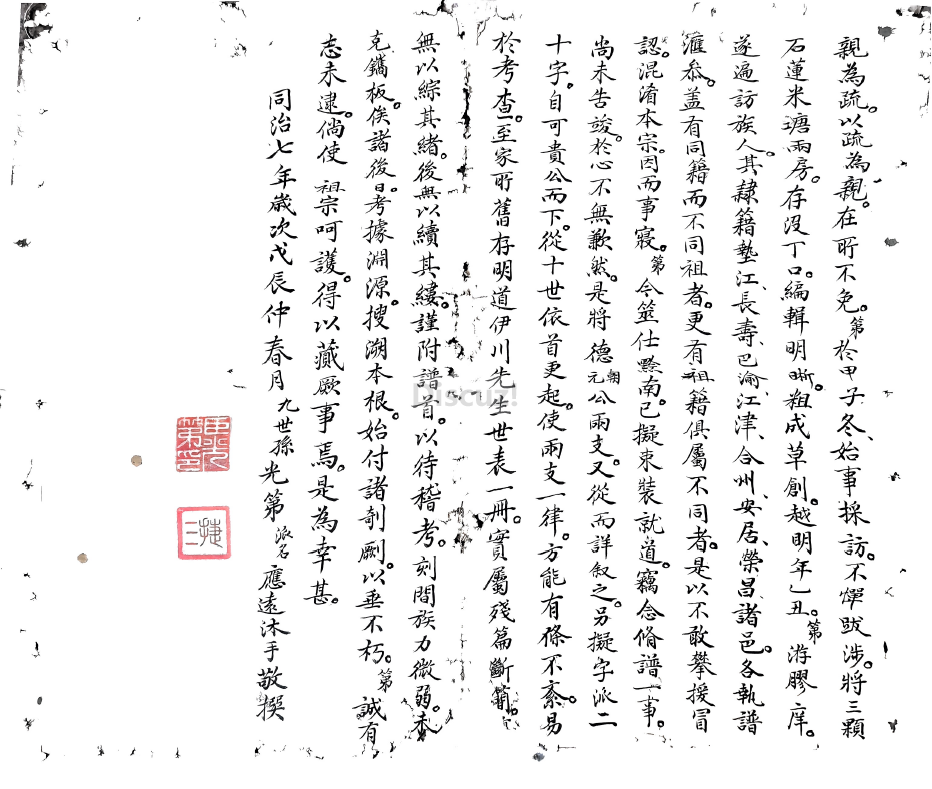 親為疏。以疏為親。在所不免。第於甲子冬、始事採訪。不憚跋涉。將三顆
石蓮米瑭兩房。存沒丁口。編輯明晰。粗成草創。越明年乙丑。第游膠庠。
遂遍訪族人。其隸籍墊江、長壽、巴渝、江津、合州、安居、榮昌諸邑。各執譜
滙叅。盖有同籍而不同祖者。更有祖籍俱屬不同者。是以不敢攀援冒
認。混淆本宗。因而事寢。第今筮仕黔南。已擬束裝就道。竊念脩譜一事。
尚未告竣。於心不無歉然。是將德元朝公兩支。又從而詳叙之。另擬字派二
十字。自可貴公而下。從十世依首更起。使兩支一律。方能有條不紊。易
於考查。至家所舊存明道伊川先生世表一冊。實屬殘篇斷簡。
無以綜其緒。後無以續其縷。謹附譜首。以待稽考。刻間族力微弱。未
克鐫板。俟諸後日。考據淵源。搜溯本根。始付諸剞劂。以垂不朽。第誠有
志未逮。倘使祖宗呵護。得以藏厥事焉。是為幸甚。
同治七年歲次戊辰仲春月九世孫光第派名應遠沐手敬撰
Discuz!